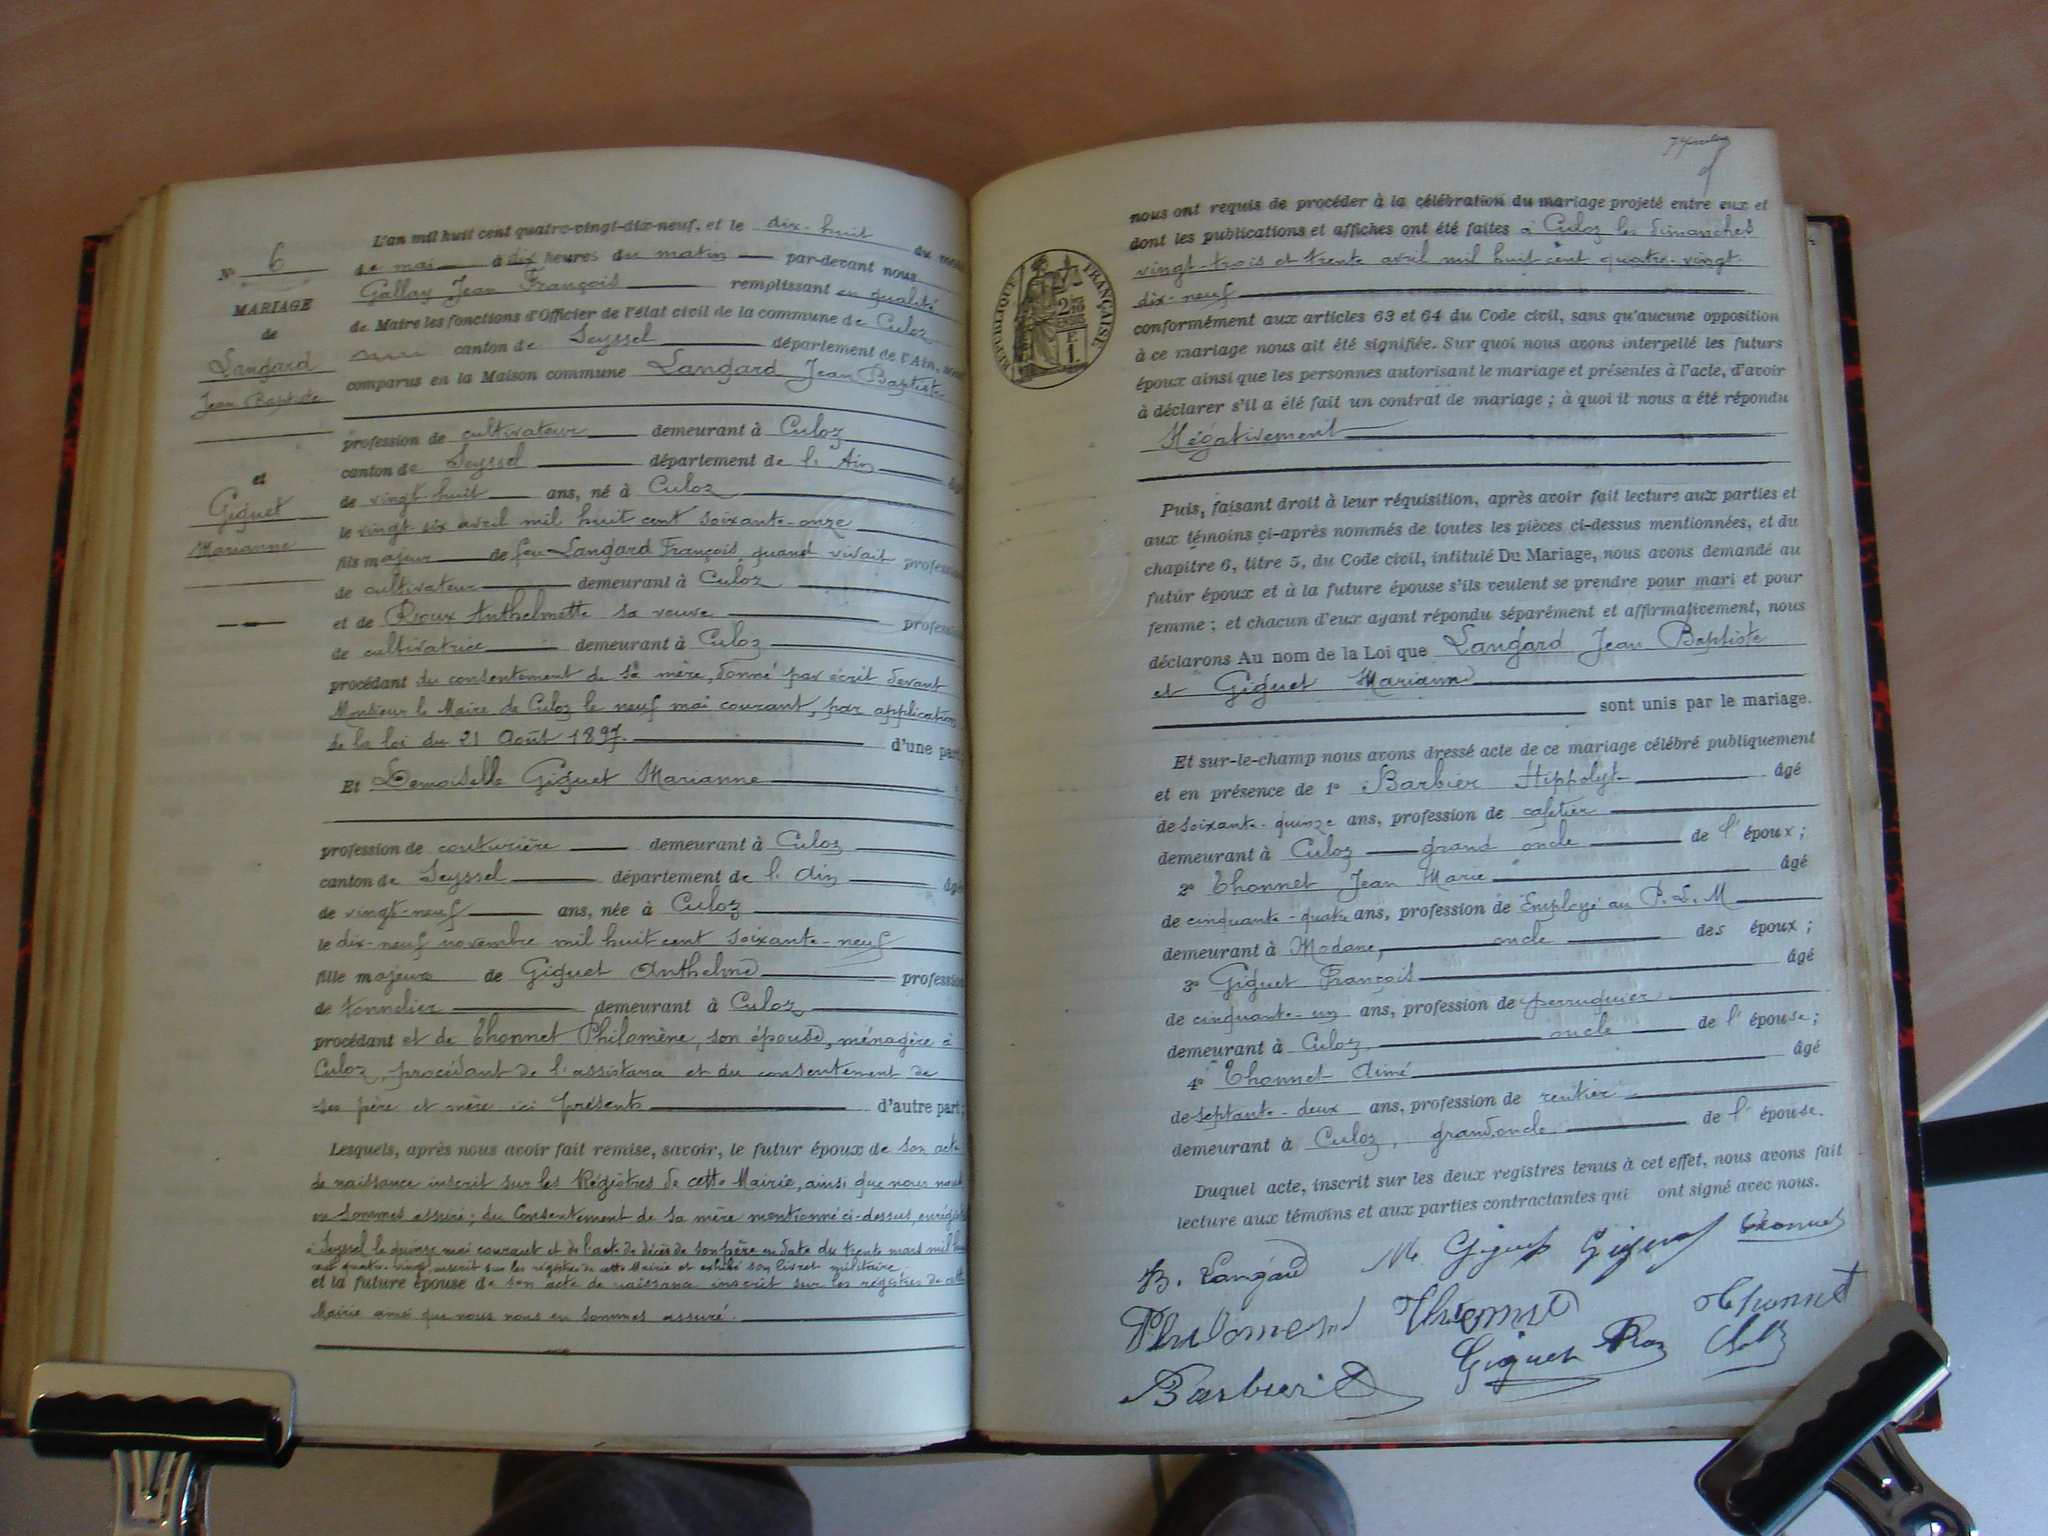 N° 6
MARIAGE
de
Langard
Jean Baptiste
et
Giguet
Marianne
L'an mil huit cent quatre-vingt-dix-neuf, et le dix-huit du mois
de mai à dix heures du matin par-devant nous
Gallay Jean François remplissant en qualité
de Maire les fonctions d'Officier de l'état civil de la commune de Culoz
canton de Seyssel département de l'Ain, sont
comparus en la Maison commune Langard Jean Baptiste
profession de cultivateur demeurant à Culoz
canton de Seyssel département de l'Ain âgé
de vingt-huit ans, né à Culoz
le vingt six avril mil huit cent soixante-onze
fils majeur de feu Langard François quand vivait profession
de cultivateur demeurant à Culoz
et de Rioux Anthelmette sa veuve profession
de cultivatrice demeurant à Culoz
procédant du consentement de sa mère, donné par écrit devant
Monsieur le Maire de Culoz le neuf mai courant, par application
de la loi du 21 Août 1897. d'une part;
Et Demoiselle Giguet Marianne
profession de couturière demeurant à Culoz
canton de Seyssel département de l'Ain âgée
de vingt-neuf ans, née à Culoz
le dix-neuf novembre mil huit cent soixante-neuf
fille majeure de Giguet Anthelme profession
de tonnelier demeurant à Culoz
procédant et de Thonnet Philomène, son épouse, ménagère à
Culoz, procédant de l'assistance et du consentement de
ses père et mère ici présents d'autre part;
Lesquels, après nous avoir fait remise, savoir, le futur époux de son acte
de naissance inscrit sur les Régistres de cette Mairie, ainsi que nous nous
en sommes assuré; du Consentement de sa mère mentionné ci-dessus, enrégistré
à Seyssel le quinze mai courant et de l'acte de décès de son père en date du trente mars mil huit
cent quatre-vingt, inscrit sur les régistres de cette Mairie et exhibé son livret militaire
et la future épouse de son acte de naissance inscrit sur les régistres de cette
Mairie ainsi que nous nous en sommes assuré.
nous ont requis de procéder à la célébration du mariage projeté entre eux et
dont les publications et affiches ont été faites à Culoz les dimanches
vingt-trois et trente avril mil huit cent quatre-vingt
dix-neuf
RÉPUBLIQUE FRANÇAISE
conformément aux articles 63 et 64 du Code civil, sans qu'aucune opposition
à ce mariage nous ait été signifiée. Sur quoi nous avons interpellé les futurs
époux ainsi que les personnes autorisant le mariage et présentes à l'acte, d'avoir
à déclarer s'il a été fait un contrat de mariage; à quoi il nous a été répondu
Négativement
Puis, faisant droit à leur réquisition, après avoir fait lecture aux parties et
aux témoins ci-après nommés de toutes les pièces ci-dessus mentionnées, et du
chapitre 6, titre 5, du Code civil, intitulé Du Mariage, nous avons demandé au
futur époux et à la future épouse s'ils veulent se prendre pour mari et pour
femme; et chacun d'eux ayant répondu séparément et affirmativement, nous
déclarons Au nom de la Loi que Langard Jean Baptiste
et Giguet Marianne
sont unis par le mariage.
Et sur-le-champ nous avons dressé acte de ce mariage célébré publiquement
et en présence de 1° Barbier Hippolyte âgé
de soixante-quinze ans, profession de cafetier
demeurant à Culoz grand oncle de l'époux;
2° Thonnet Jean Marie âgé
de cinquante-quatre ans, profession de Employé au P.L.M
demeurant à Modane, oncle des époux;
3° Giguet François âgé
de cinquante-un ans, profession de perruquier
demeurant à Culoz, oncle de l'épouse;
4° Thonnet Aimé âgé
de septante-deux ans, profession de rentier
demeurant à Culoz, grand oncle de l'épouse.
Duquel acte, inscrit sur les deux registres tenus à cet effet, nous avons fait
lecture aux témoins et aux parties contractantes qui ont signé avec nous.
B. Langard M. Giguet Giguet Thonnet
Philomene Thonnet Thonnet
Barbier Giguet Fran